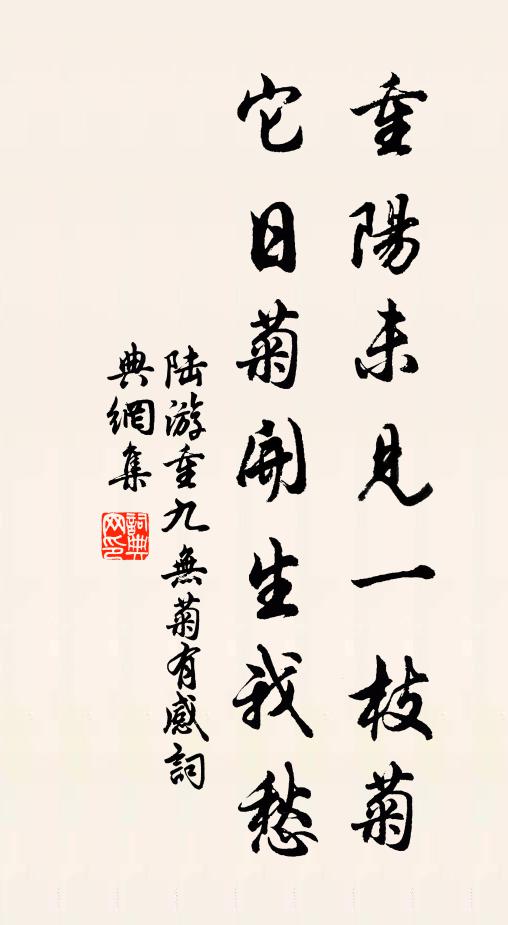 重陽未見一枝菊
它日菊開生我愁
陆游重九無菊有感詞
典網集
詞典
网印